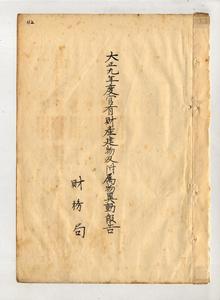 大正九年度官有財産建物及附属物異動報告
財務局